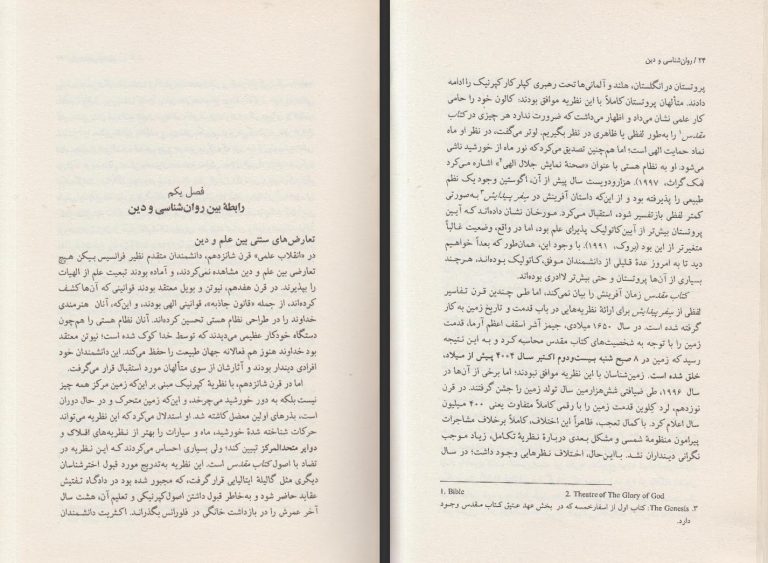 فصل یکم
رابطهٔ بین روان‌شناسی و دین
تعارض‌های سنتی بین علم و دین
در «انقلاب علمی» قرن شانزدهم، دانشمندان متقدم نظیر فرانسیس بیکن هیچ
تعارضی بین علم و دین مشاهده نمی‌کردند، و آماده بودند تبعیت علم از الهیات
را بپذیرند. در قرن هفدهم، نیوتن و بویل معتقد بودند قوانینی که آن‌ها کشف
کرده‌اند، از جمله «قانون جاذبه»، قوانینی الهی بودند، و این‌که، آنان هنرمندی
خداوند را در طراحی نظام هستی تحسین کرده‌اند. آنان نظام هستی را هم‌چون
دستگاه خودکار عظیمی می‌دیدند که توسط خدا کوک شده است؛ نیوتن معتقد
بود خداوند هنوز هم فعالانه جهان طبیعت را حفظ می‌کند. این دانشمندان خود
افرادی دیندار بودند و آثارشان از سوی متألهان مورد استقبال قرار می‌گرفت.
اما در قرن شانزدهم، با نظریهٔ کپرنیک مبنی بر این‌که زمین مرکز همه چیز
نیست بلکه به دور خورشید می‌چرخد، و این‌که زمین متحرک و در حال دوران
است، بذرهای اولین معضل کاشته شد. او استدلال می‌کرد که این نظریه می‌تواند
حرکات شناخته شدهٔ خورشید، ماه و سیارات را بهتر از نظریه‌های افلاک و
دوایر متحدالمرکز تبیین کند؛ ولی بسیاری احساس می‌کردند که این نظریه در
تضاد با اصول کتاب مقدس است. این نظریه به‌تدریج مورد قبول اخترشناسان
دیگری مثل گالیلهٔ ایتالیایی قرار گرفت، که مجبور شده بود در دادگاه تفتیش
عقاید حاضر شود و به‌خاطر قبول داشتن اصول کپرنیکی و تعلیم آن، هشت سال
آخر عمرش را در بازداشت خانگی در فلورانس بگذراند. اکثریت دانشمندان
۲۴ / روان‌شناسی و دین
پروتستان در انگلستان، هلند و آلمانی‌ها تحت رهبری کپلر کار کپرنیک را ادامه
دادند. متألهان پروتستان کاملاً با این نظریه موافق بودند: کالون خود را حامی
کار علمی نشان می‌داد و اظهار می‌داشت که ضرورت ندارد هر چیزی در کتاب
مقدس۱ را به‌طور لفظی یا ظاهری در نظر بگیریم. لوتر می‌گفت، در نظر او ماه
نماد حمایت الهی است؛ اما هم‌چنین تصدیق می‌کرد که نور ماه از خورشید ناشی
می‌شود. او به نظام هستی با عنوان «صحنهٔ نمایش جلال الهی۲» اشاره می‌کرد
(مک گراث، ۱۹۹۷). هزارودویست سال پیش از آن، اگوستین وجود یک نظم
طبیعی را پذیرفته بود و از این‌که داستان آفرینش در سِفر پیدایش۳ به‌صورتی
کمتر لفظی بازتفسیر شود، استقبال می‌کرد. مورخان نشان داده‌اند که آیین
پروتستان بیش‌تر از آیین کاتولیک پذیرای علم بود، اما در واقع، وضعیت غالباً
متغیرتر از این بود (بروک، ۱۹۹۱). با وجود این، همان‌طور که بعداً خواهیم
دید تا به امروز عدهٔ قلیلی از دانشمندان موفق، کاتولیک بوده‌اند، هرچند
بسیاری از آن‌ها پروتستان و حتی بیش‌تر لاادری بوده‌اند.
کتاب مقدس زمان آفرینش را بیان نمی‌کند، اما طی چندین قرن تفاسیر
لفظی از سِفر پیدایش برای ارائهٔ نظریه‌هایی در باب قدمت و تاریخ زمین به کار
گرفته شده است. در سال ۱۶۵۰ میلادی، جیمز آشر اسقف اعظم آرما، قدمت
زمین را با توجه به شخصیت‌های کتاب مقدس محاسبه کرد و به این نتیجه
رسید که زمین در ۸ صبح شنبه بیست‌ودوم اکتبر سال ۴۰۰۴ پیش از میلاد،
خلق شده است. زمین‌شناسان با این نظریه موافق نبودند؛ اما برخی از آن‌ها در
سال ۱۹۹۶، طی ضیافتی شش‌هزارمین سال تولد زمین را جشن گرفتند. در قرن
نوزدهم، لرد کلوین قدمت زمین را با رقمی کاملاً متفاوت یعنی ۴۰۰ میلیون
سال اعلام کرد. با کمال تعجب، ظاهراً این اختلاف، کاملاً برخلاف مشاجرات
پیرامون منظومهٔ شمسی و مشکل بعدی دربارهٔ نظریهٔ تکامل، زیاد موجب
نگرانی دینداران نشد. بااین‌حال، اختلاف نظرهایی وجود داشت؛ در سال
1. Bible 2. Theatre of The Glory of God
۳. The Genesis: کتاب اول از اسفار خمسه که در بخش عهد عتیق کتاب مقدس وجود
دارد.